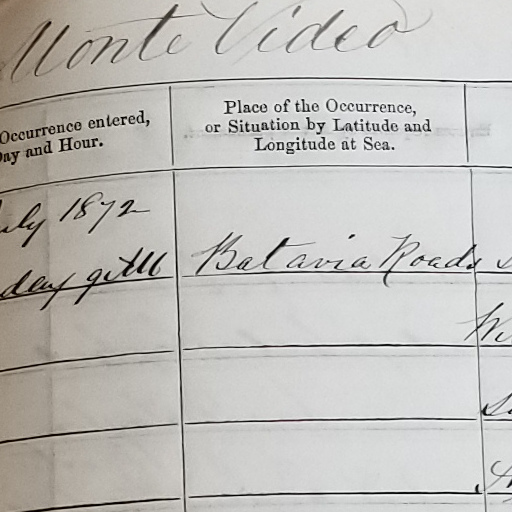 Monte Video
Occurrence entered,
Day and Hour.
Place of the Occurrence,
or Situation by Latitude and
Longitude at Sea.
uly 1872
day
Batavia Roads